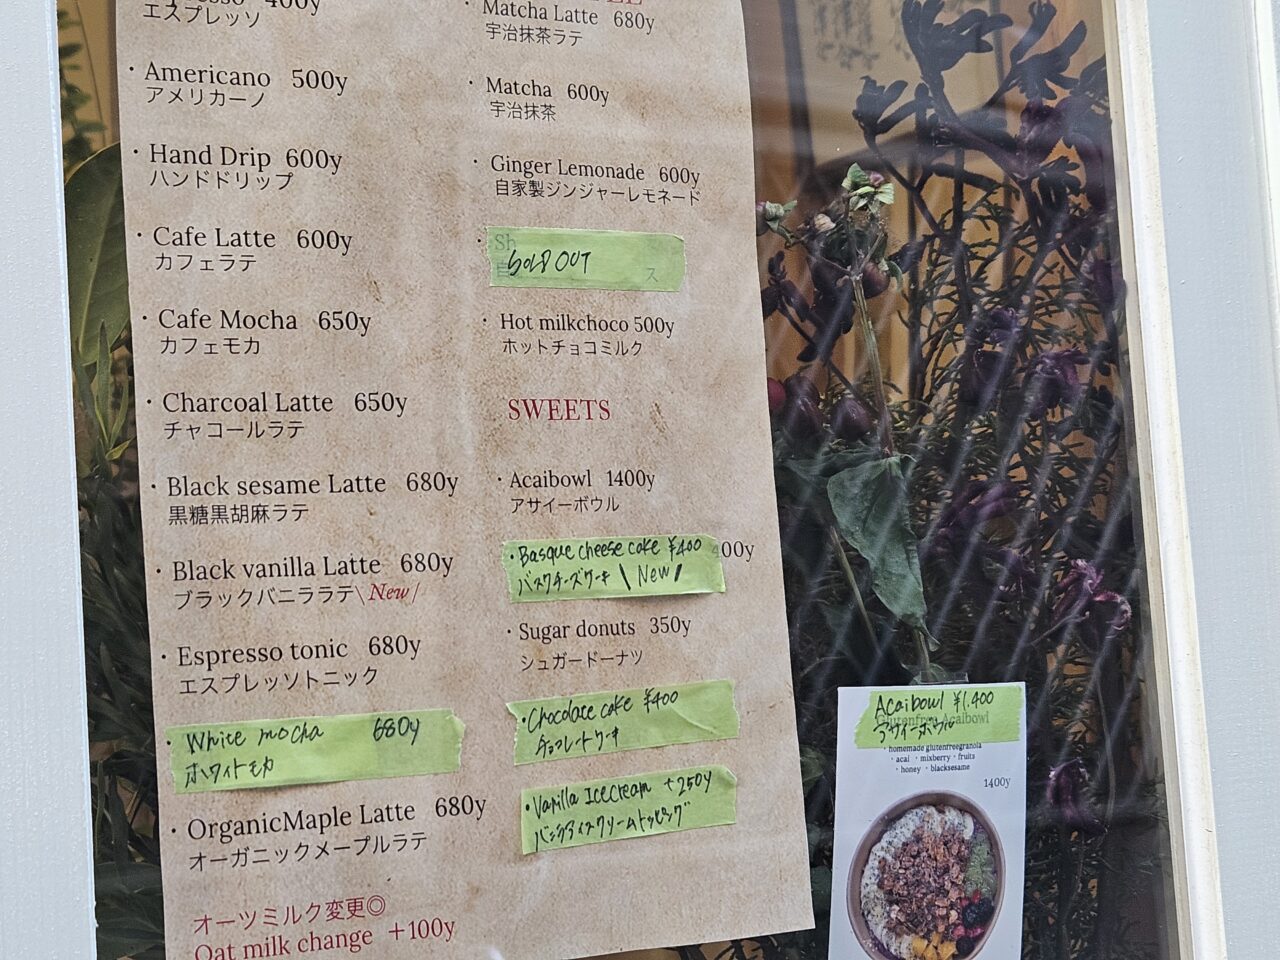 400y
エスプレッソ
· Americano 500y
アメリカーノ
· Hand Drip 600y
ハンドドリップ
· Cafe Latte 600y
カフェラテ
· Cafe Mocha 650y
カフェモカ
· Charcoal Latte 650y
チャコールラテ
· Black sesame Latte 680y
黒糖黒胡麻ラテ
· Black vanilla Latte 680y
ブラックバニララテ \ New /
· Espresso tonic 680y
エスプレッソトニック
· White mocha 680y
ホワイトモカ
· OrganicMaple Latte 680y
オーガニックメープルラテ
オーツミルク変更◎
Oat milk change +100y
· Matcha Latte 680y
宇治抹茶ラテ
· Matcha 600y
宇治抹茶
· Ginger Lemonade 600y
自家製ジンジャーレモネード
SOLD OUT
· Hot milkchoco 500y
ホットチョコミルク
SWEETS
· Acaibowl 1400y
アサイーボウル
· Basque cheese cake ¥400
バスクチーズケーキ \ New /
· Sugar donuts 350y
シュガードーナツ
· Chocolate cake ¥400
チョコレートケーキ
· Vanilla Icecream +250y
バニラアイスクリームトッピング
Acaibowl ¥1,400
アサイーボウル
Glutenfree Acaibowl
· homemade glutenfreegranola
· acai · mixberry · fruits
· honey · blacksesame
1400y